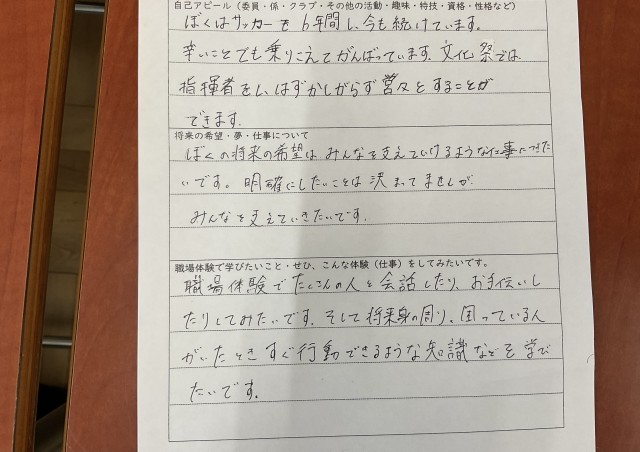 自己アピール（委員・係・クラブ・その他の活動・趣味・特技・資格・性格など）
ぼくはサッカーを6年間し、今も続けています。
辛いことでも乗りこえてがんばっています。文化祭では
指揮者をし、はずかしがらず堂々とすることが
できます。
将来の希望・夢・仕事について
ぼくの将来の希望はみんなを支えていけるような仕事につきた
いです。明確にしたいことは決まってませんが
みんなを支えていきたいです。
職場体験で学びたいこと・ぜひ、こんな体験（仕事）をしてみたいです。
職場体験でたくさんの人と会話したり、お手伝いし
たりしてみたいです。そして将来身の周り、困っている人
がいたときすぐ行動できるような知識などを学び
たいです。